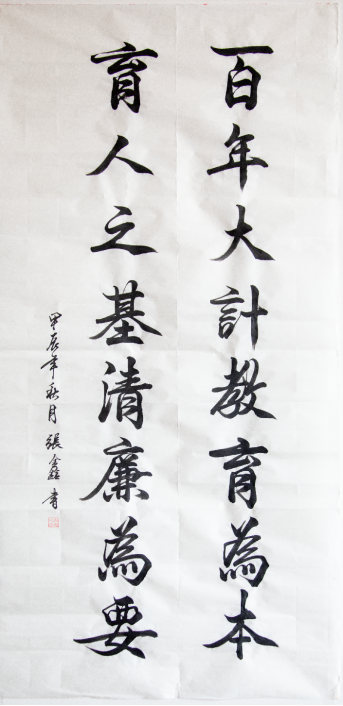 百年大計教育為本
育人之基清廉為要
甲辰年秋月張鑫書